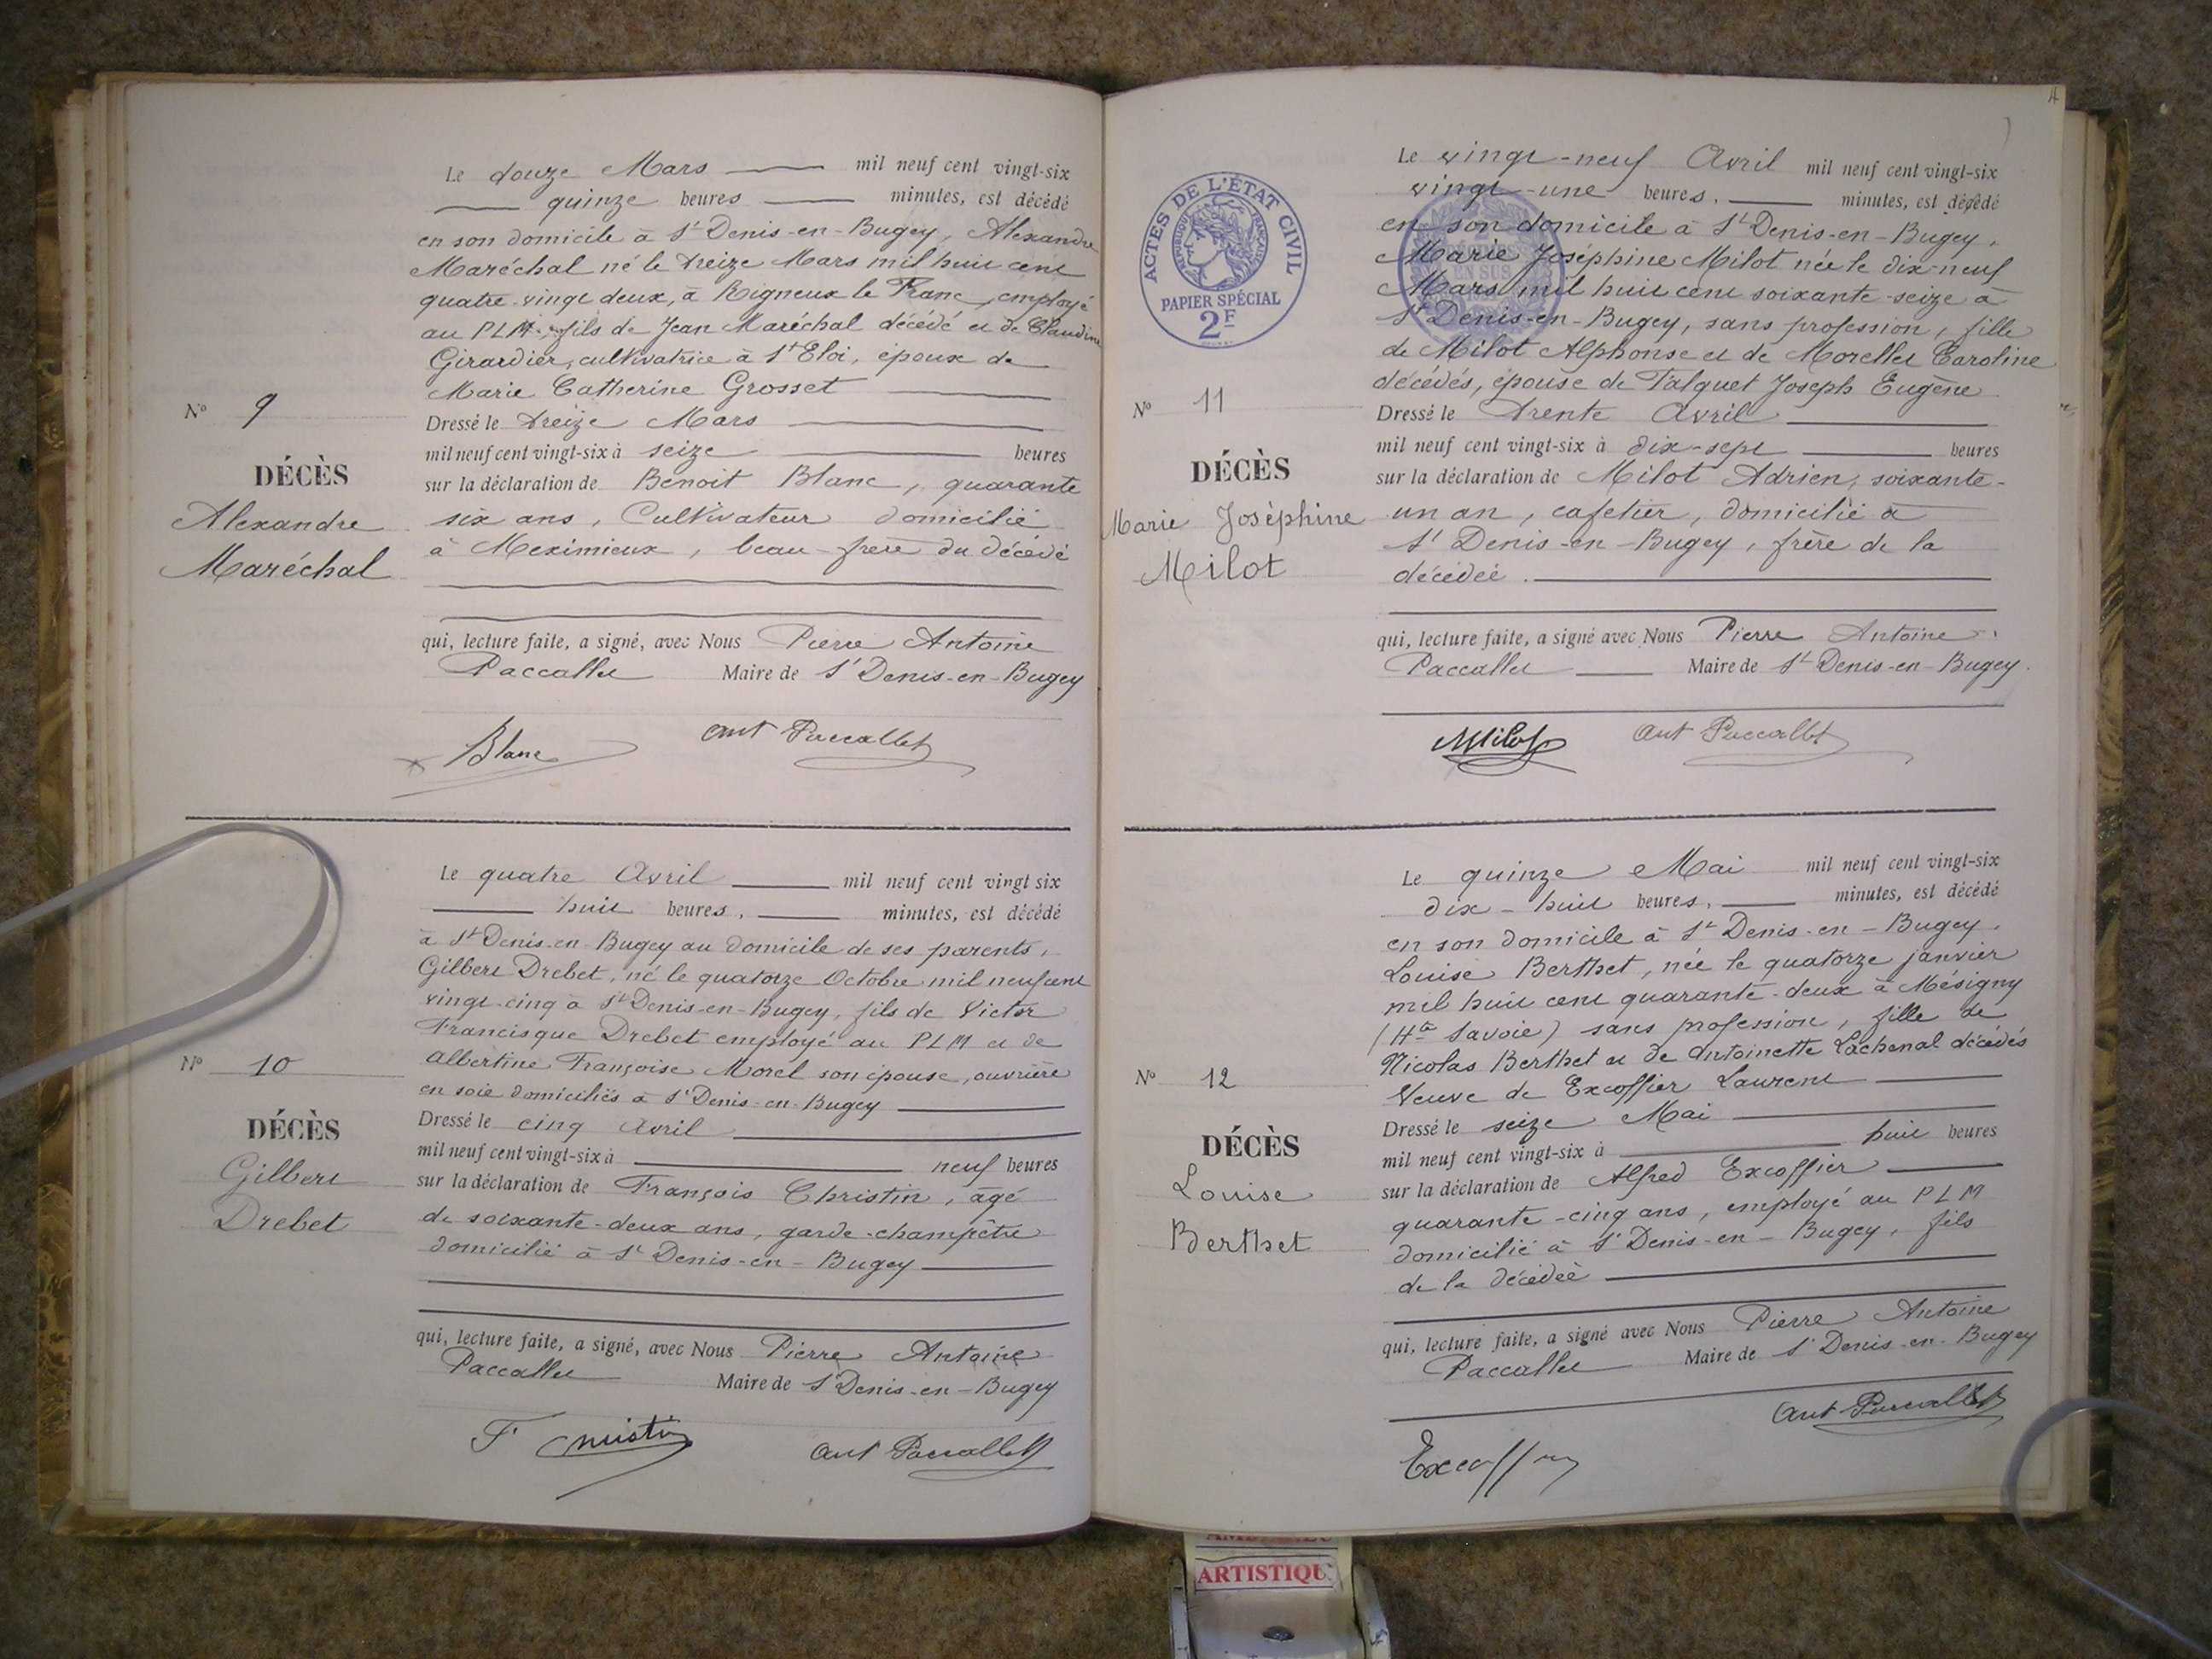 Le douze Mars mil neuf cent vingt-six
quinze heures minutes, est décédé
en son domicile à St Denis-en-Bugey, Alexandre
Maréchal né le treize Mars mil huit cent
quatre-vingt deux, à Rigneux le Franc, employé
au PLM, fils de Jean Maréchal décédé et de Claudine
Girardier, cultivatrice à St Eloi, époux de
Marie Catherine Grosset
No 9
Dressé le treize Mars
mil neuf cent vingt-six à seize heures
DÉCÈS
sur la déclaration de Benoit Blanc, quarante
Alexandre
six ans, Cultivateur domicilié
Maréchal
à Meximieux, beau-frère du décédé
qui, lecture faite, a signé, avec Nous Pierre Antoine
Paccallet Maire de St Denis-en-Bugey
Blanc Ant Paccallet
Le quatre Avril mil neuf cent vingt six
huit heures, minutes, est décédé
à St Denis-en-Bugey au domicile de ses parents,
Gilbert Drebet, né le quatorze Octobre mil neuf cent
vingt-cinq à St Denis-en-Bugey, fils de Victor
Francisque Drebet employé au PLM et de
Albertine Françoise Morel son épouse, ouvrière
en soie domiciliés à St Denis-en-Bugey
No 10
Dressé le cinq Avril
DÉCÈS
mil neuf cent vingt-six à neuf heures
Gilbert
sur la déclaration de François Christin, âgé
Drebet
de soixante-deux ans, garde-champêtre
domicilié à St Denis-en-Bugey
qui, lecture faite, a signé, avec Nous Pierre Antoine
Paccallet Maire de St Denis-en-Bugey
F Christin Ant Paccallet
4
ACTES DE L'ÉTAT CIVIL
RÉPUBLIQUE FRANÇAISE
PAPIER SPÉCIAL
2F
Le vingt-neuf Avril mil neuf cent vingt-six
vingt-une heures, minutes, est décédé
en son domicile à St Denis-en-Bugey,
Marie Joséphine Milot née le dix-neuf
EN SUS
Mars mil huit cent soixante-seize à
St Denis-en-Bugey, sans profession, fille
de Milot Alphonse et de Morellet Caroline
décédés, épouse de Falquet Joseph Eugène
No 11
Dressé le trente Avril
mil neuf cent vingt-six à dix-sept heures
DÉCÈS
sur la déclaration de Milot Adrien, soixante-
Marie Joséphine
un an, cafetier, domicilié à
Milot
St Denis-en-Bugey, frère de la
décédée.
qui, lecture faite, a signé avec Nous Pierre Antoine
Paccallet Maire de St Denis-en-Bugey.
Milot Ant Paccallet
Le quinze Mai mil neuf cent vingt-six
dix-huit heures, minutes, est décédé
en son domicile à St Denis-en-Bugey,
Louise Berthet, née le quatorze janvier
mil huit cent quarante-deux à Mésigny
(Hte Savoie) sans profession, fille de
Nicolas Berthet et de Antoinette Lachenal décédés
Veuve de Excoffier Laurent
No 12
Dressé le seize Mai
DÉCÈS
mil neuf cent vingt-six à huit heures
Louise
sur la déclaration de Alfred Excoffier
Berthet
quarante-cinq ans, employé au PLM
domicilié à St Denis-en-Bugey, fils
de la décédée
qui, lecture faite, a signé avec Nous Pierre Antoine
Paccallet Maire de St Denis-en-Bugey
Ant Paccallet
Excoffier
ARTISTIQU